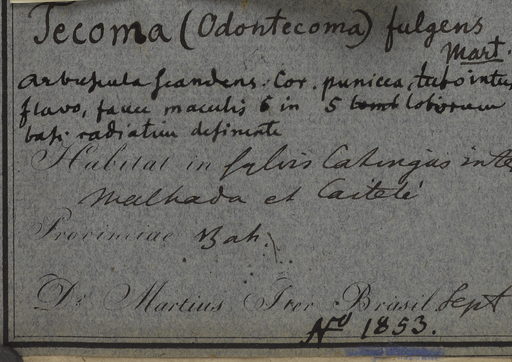 Tecoma (Odontecoma) fulgens
Mart.
Arbuscula scandens. Cor. punicea, tubo intus
flavo, fauce maculis 6 in 5 loborum
basi radiatim definente
Habitat in sylvis Catingas inte
Malhada et Caiteté
Provinciae Bah.
Dr Martius Iter Brasil Sept
No 1853.